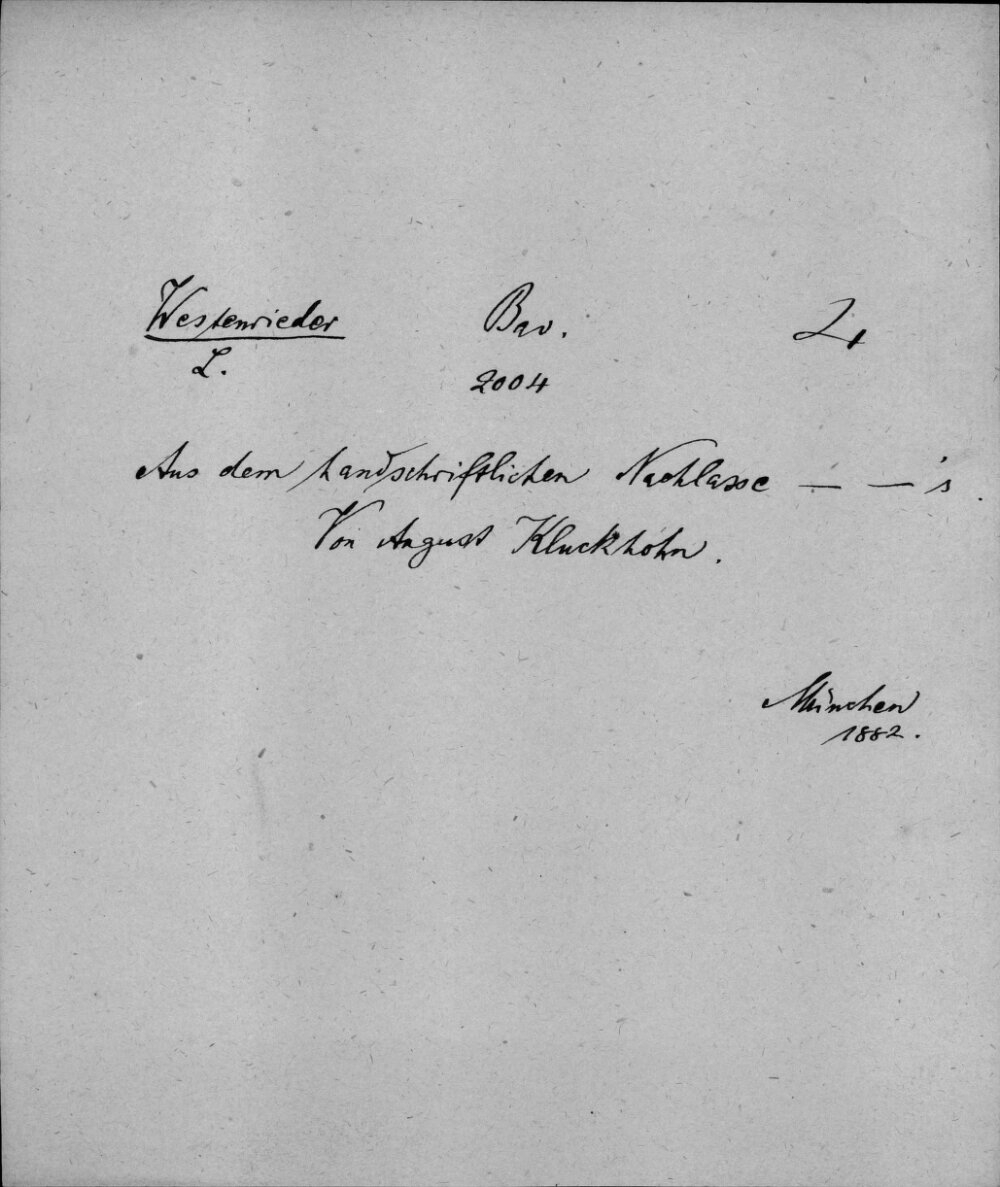 Westenrieder Bav. 4
L. 2004
Aus dem handschriftlichen Nachlasse — — 's.
Von August Kluckhohn.
München
1882.